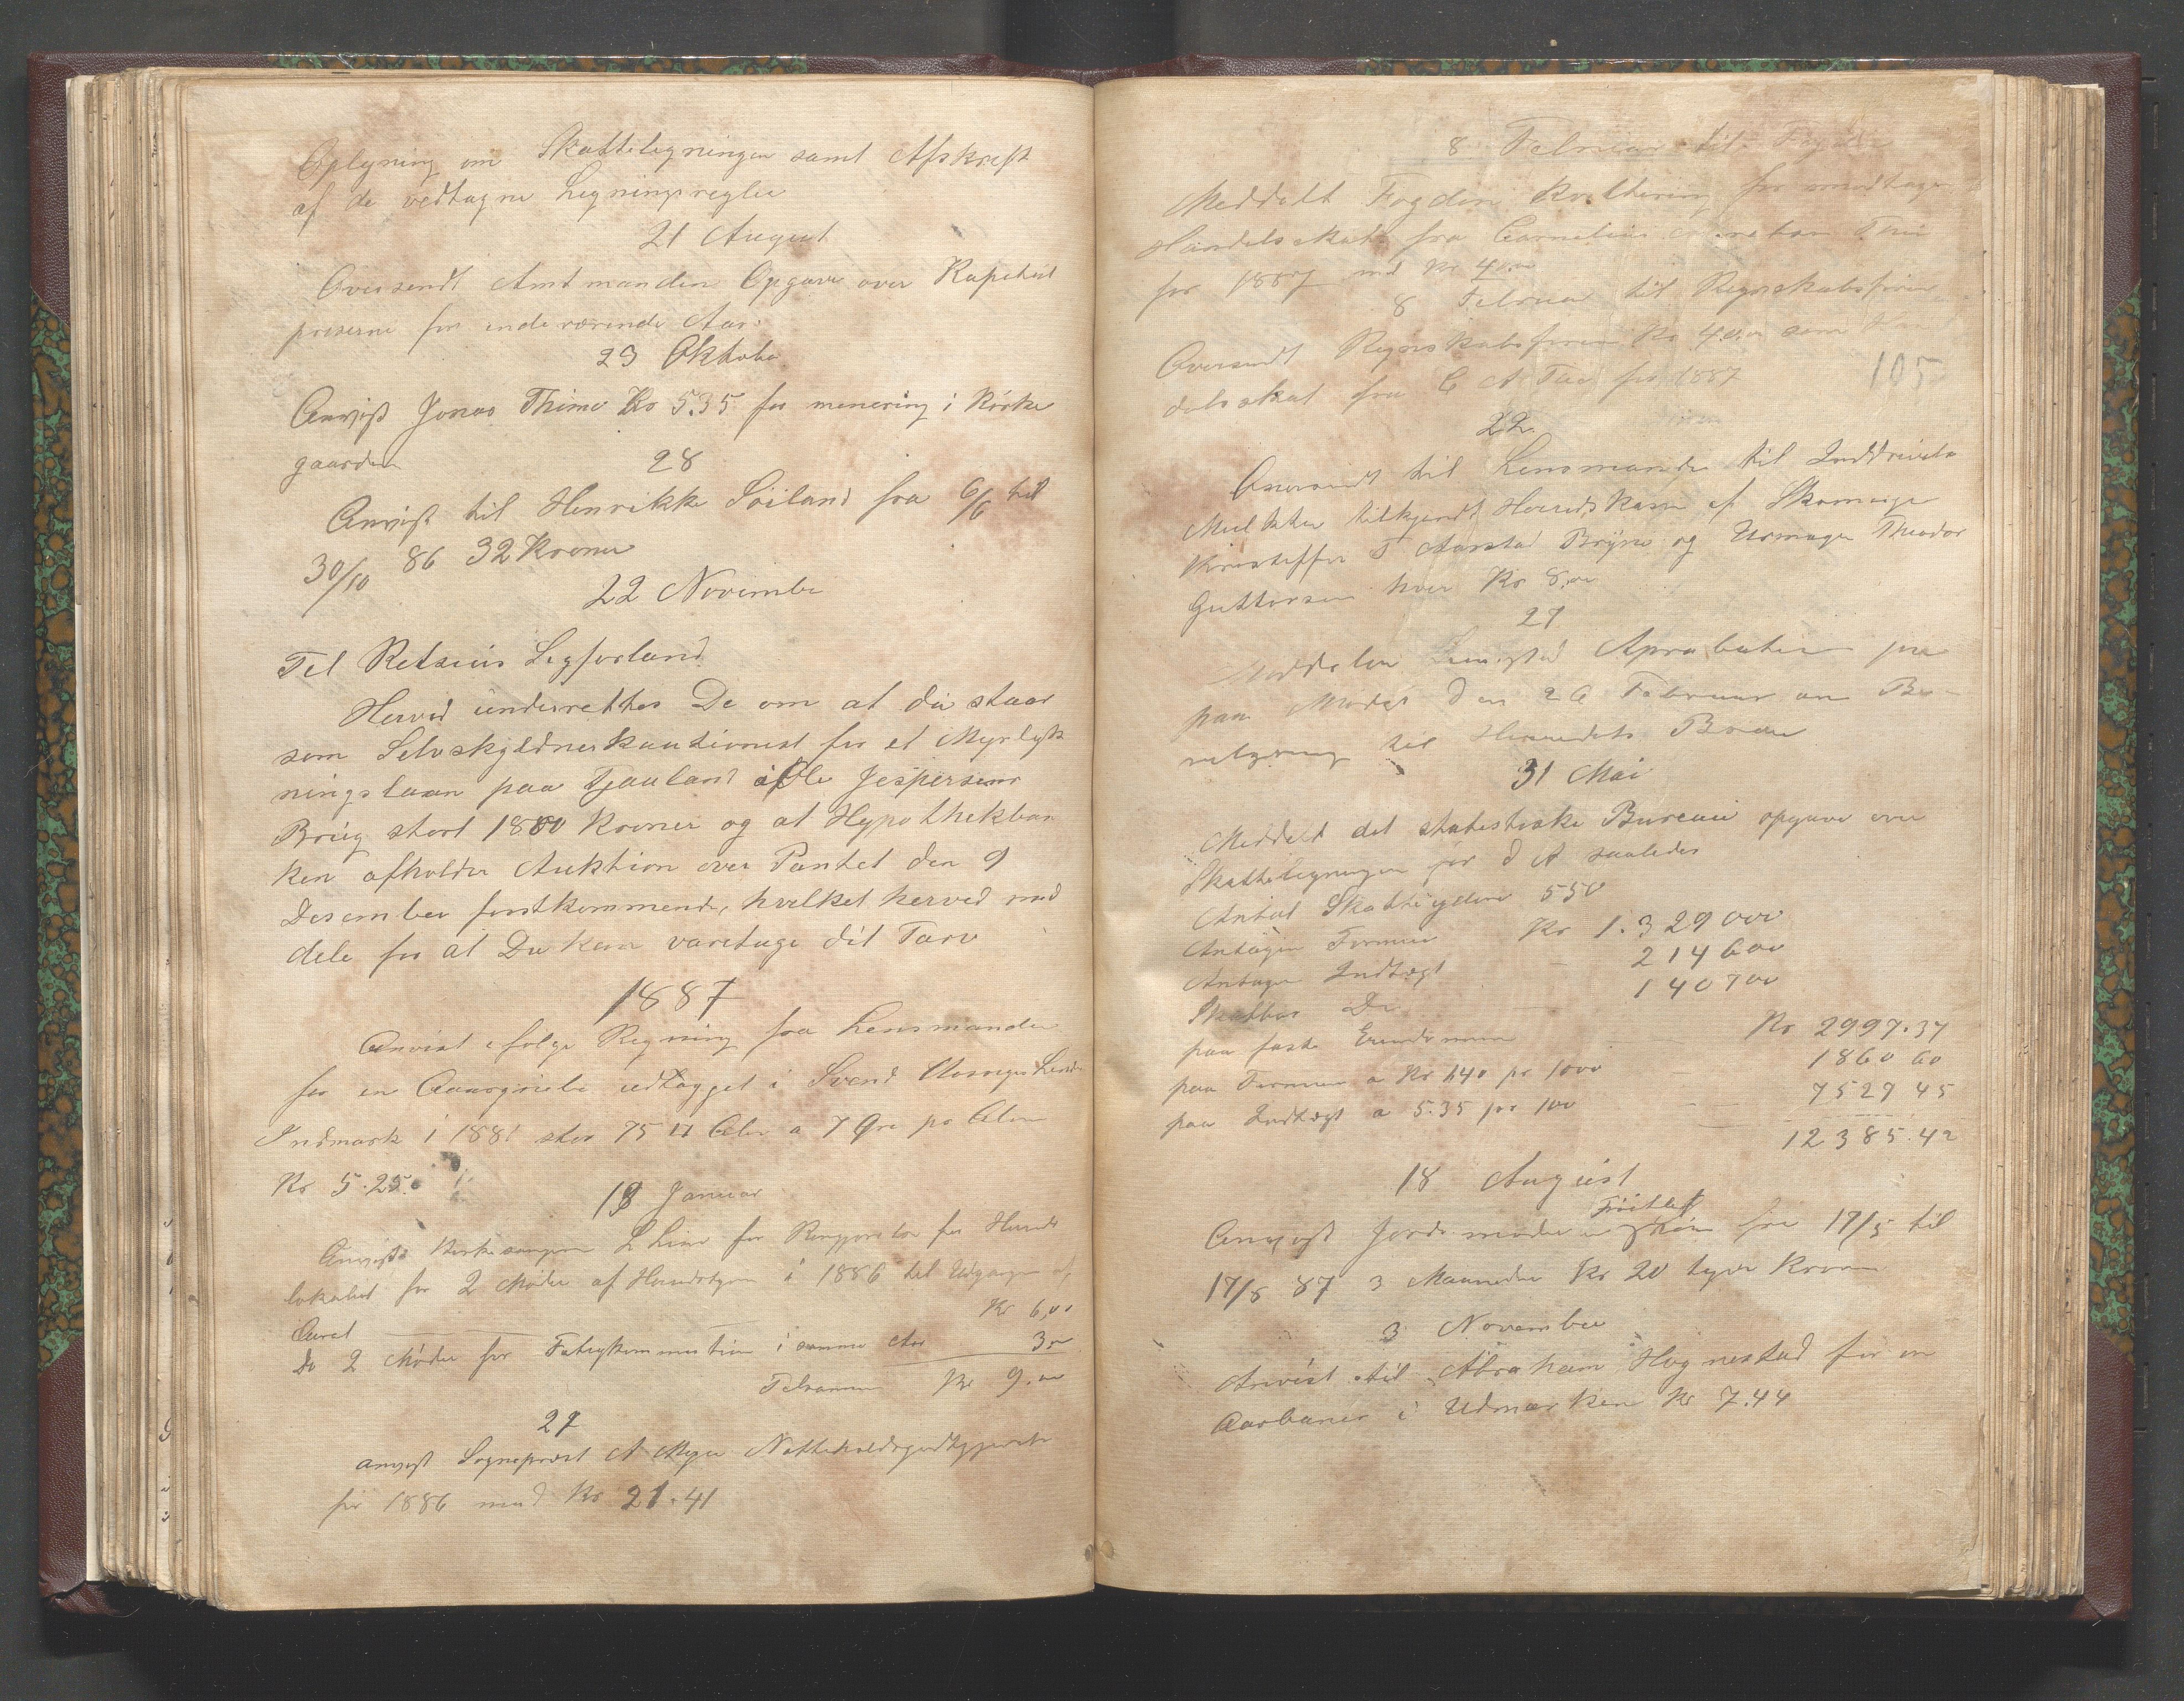 Oplysning om Skattelegningen samt Afskreft
af de vedtagne Legningsregler
21 August
Oversendt Amtmanden Opgave over Kapetels
priserne for indeværende Aar.
23 Oktober
Anvist Jonas Thime Kr 5.35 for menering i Kirke
gaarden
28
Anvist til Henrikke Soiland fra 6/6 til
30/10 86 32 Kroner
22 November
Til Retsius Legforland
Herved underrettes De om at du staar
som Selvskyldnerkautionest for et Myrlyst
ningslaan paa Tjauland i Ole Jespersens
Brug stort 1800 Kroner og at Hypothekban
ken afholder Auktion over Pantet den 9
Desember forstkommende, hvilket herved med
dele for at Du kan varetage dit Tarv
1887
Anvist efølge Regning fra Lensmanden
for en udlagget i Svend
Indmark i 1881 stor 75 Alen a 7 Øre pr Alen
Kr 5.25
18 Januar
Anvist Kirkesangeren L Line for Rengjorelse for Herreds
lokalet for 2 Møder af Herredstyre i 1886 til Udgangen af
Aaret Kr 6,00
Do 2 Møder for Fatigkommestion i samme Aar 3 00
Tilsammen Kr 9.00
27
anvist Sogneprest A Meyer Nattholdsgodtgjørelse
for 1886 med Kr 21.41
8 Februar til Fogden
Meddelt Fogden Kvittering for modtagen
Handelsskat fra Cornelius
for 1887 med Kr 40.00
8 Februar til Regnskabsfører
Oversendt Regnskabsføreren Kr 40.00 som Han
delsskat fra C A Tu for 1887
105
22
Oversendt til Lensmanden til Inddrivelse
Mulkter tilkjendt Herredskassen af Skomager
Kristoffer T Aarstad Bryne og Urmager Theodor
Guttorsen hver Kr 8,00
27
Meddelen Aprobation paa
paa Mødet den 26 Februar om Be-
velgning til Herredets Broer
31 Mai
Meddelt det statestiske Bureau opgave over
Skattelegningen for d A saaledes
Antal Skatteydere 550
Antagen Formue Kr 1.329000
Antagen Indtægt 214600
Skatbar Do 140700
paa faste Eiendomme Kr 2997.37
paa Formue a Kr 1.40 pr 1000 1860 60
paa Indtægt a 5.35 pr 100 7527 45
12385.42
18 August
Anvist Jordemoder Froitland fra 17/5 til
17/8 87 3 Maaneder Kr 20 tyve Kroner
3 November
Anvist til Abraham Hognestad for en
Aarbane i Udmarken Kr 7.44